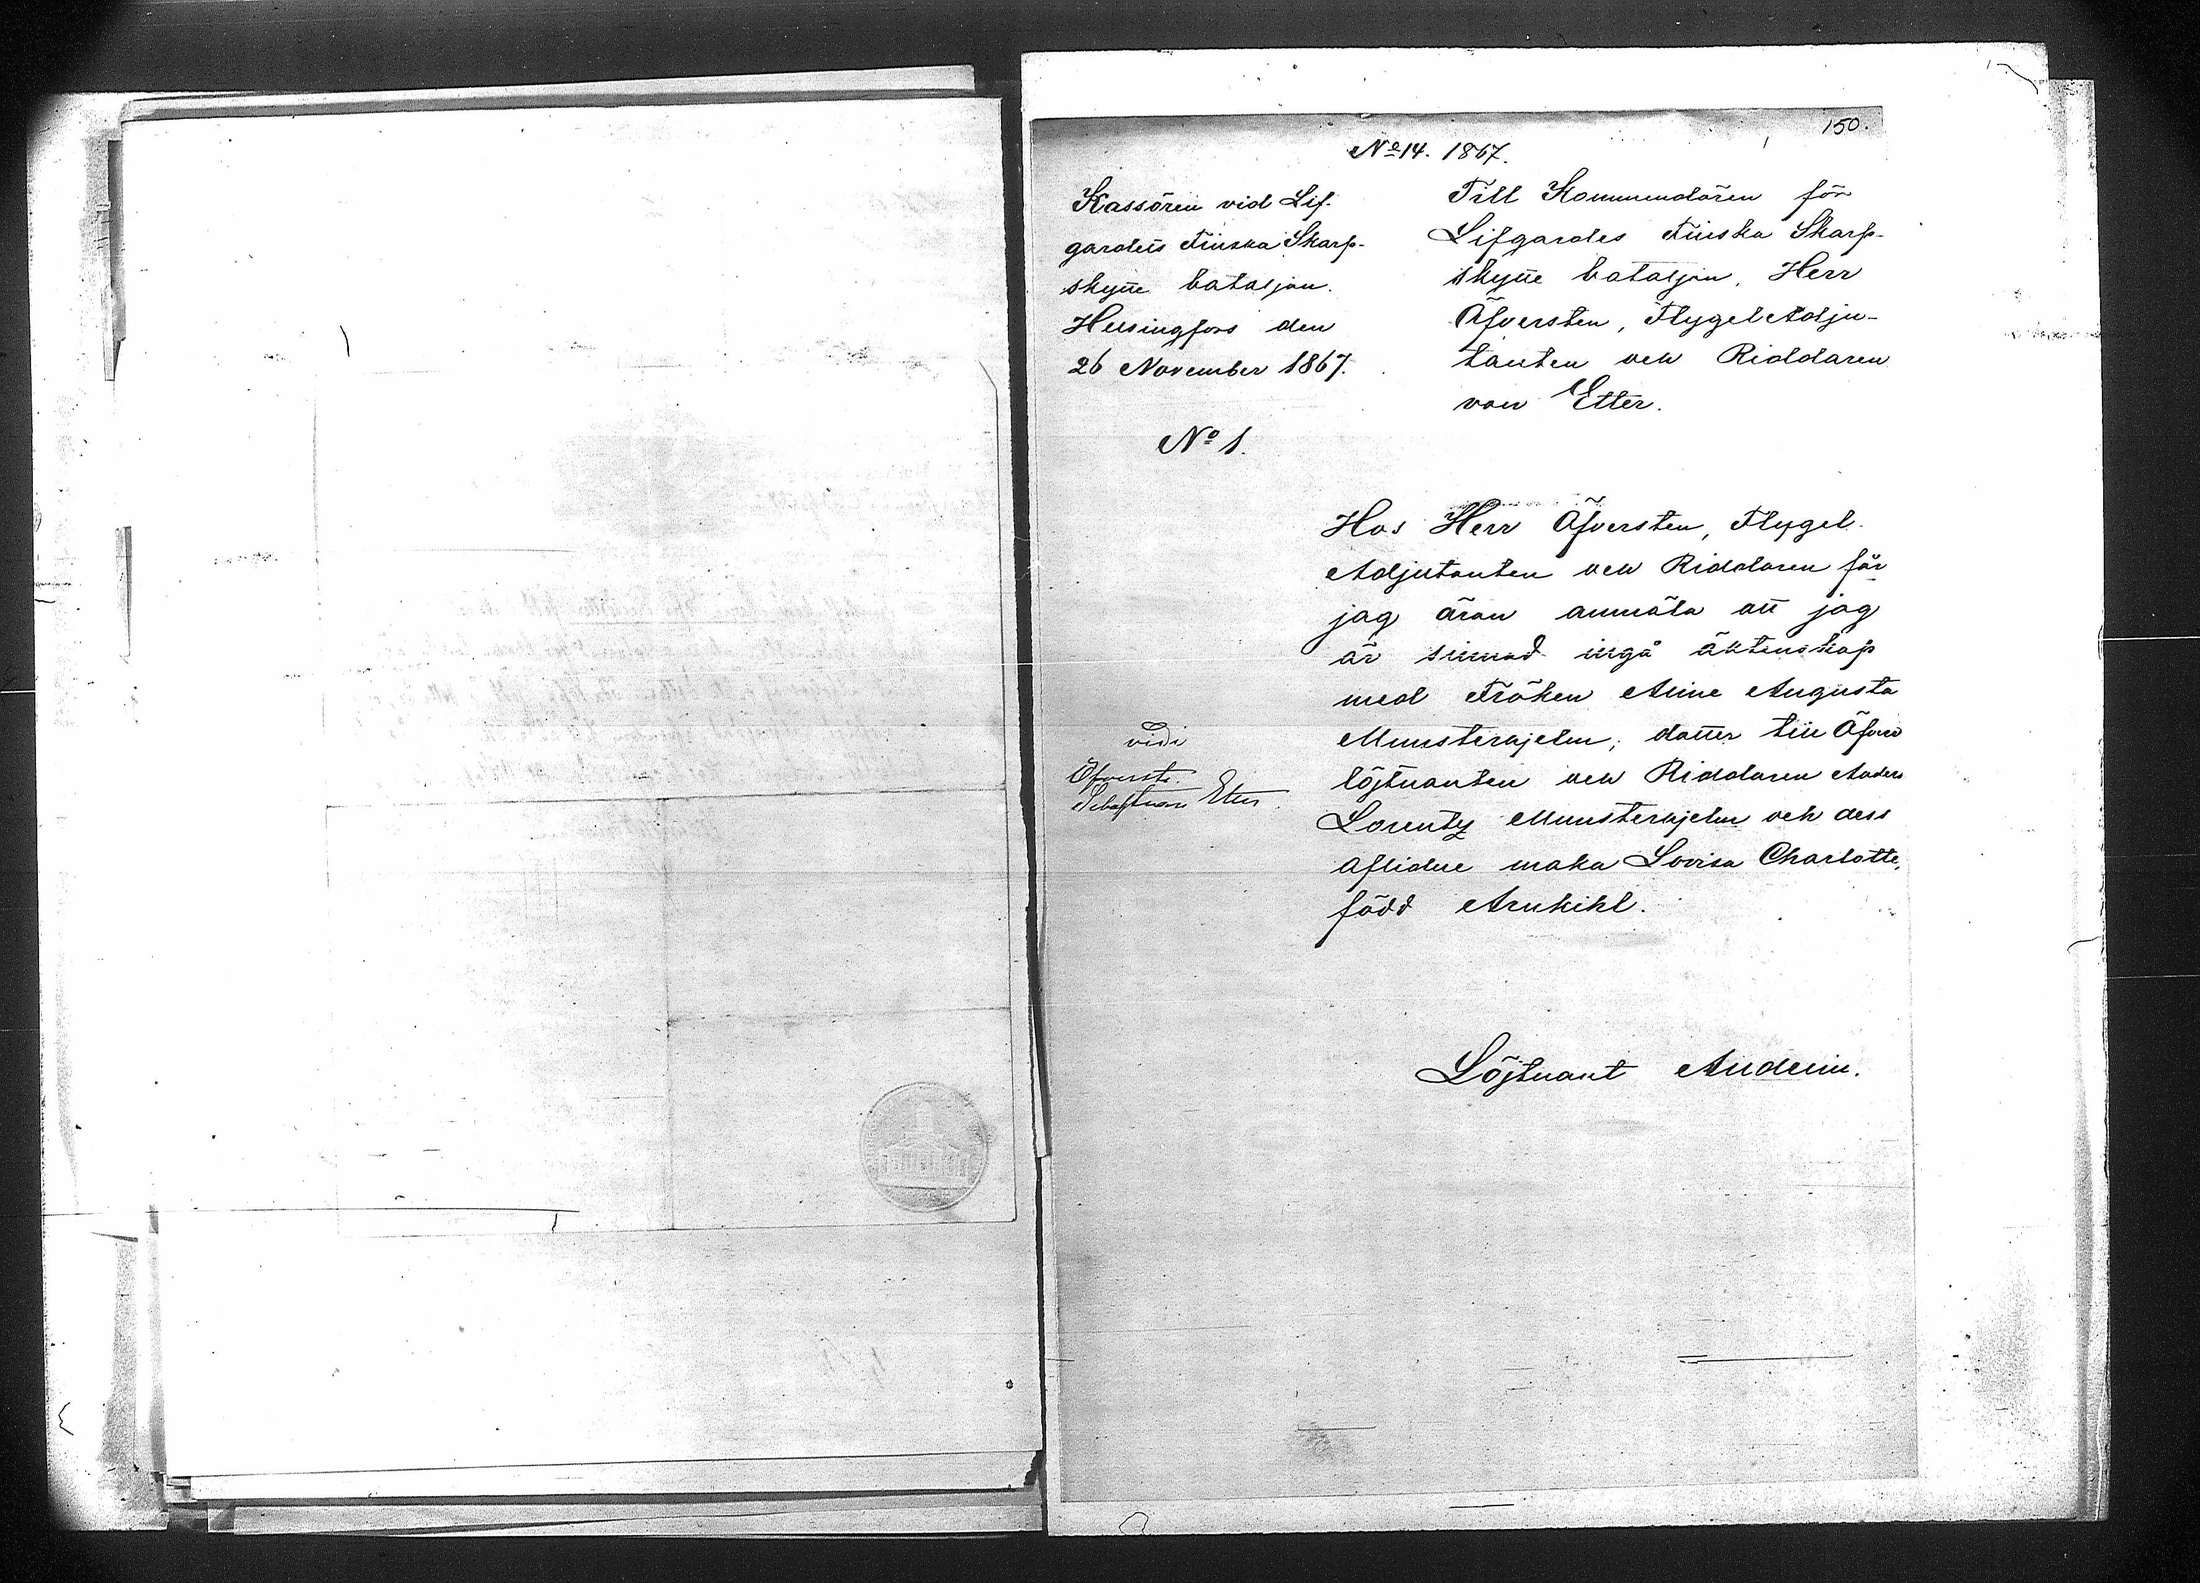 150.
No 14. 1867.
Kassören vid Lif-
gardets Finska Skarp-
skytte bataljon.
Helsingfors den
26 November 1867.
No 1.
Till Kommendören för
Lifgardes Finska Skarp-
skytte bataljon, Herr
Öfversten, Flygel Adju-
tanten och Riddaren
von Etter.
Hos Herr Öfversten, Flygel-
Adjutanten och Riddaren får
jag äran anmäla att jag
är sinnad ingå äktenskap
med Fröken Aline Augusta
Munsterhjelm, dotter till Öfverste
löjtnanten och Riddaren Anders
Lorentz Munsterhjelm och dess
aflidne maka Lovisa Charlotte,
född Arnkihl.
vidi
Öfverste
Sebastian Etter.
Löjtnant